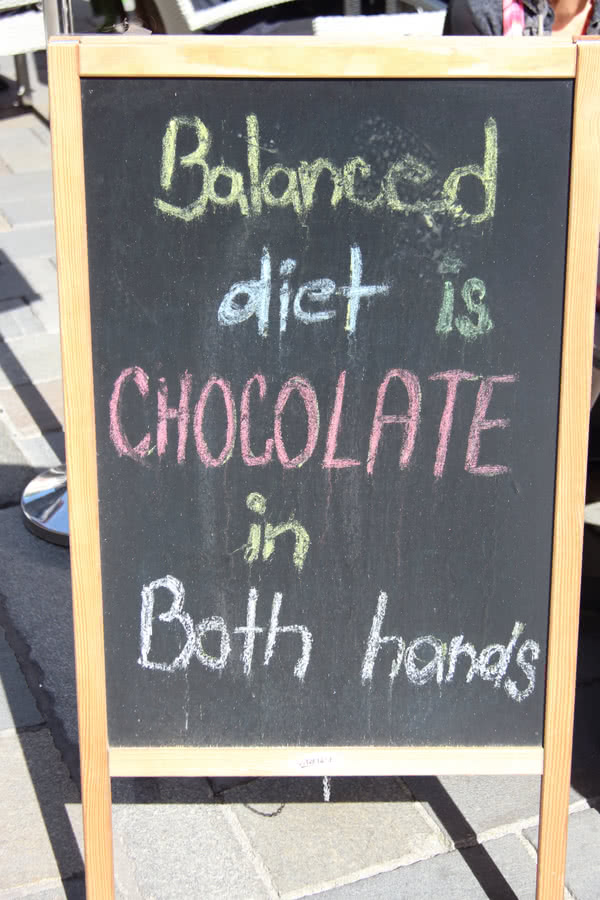 Balanced
diet is
CHOCOLATE
in
Both hands